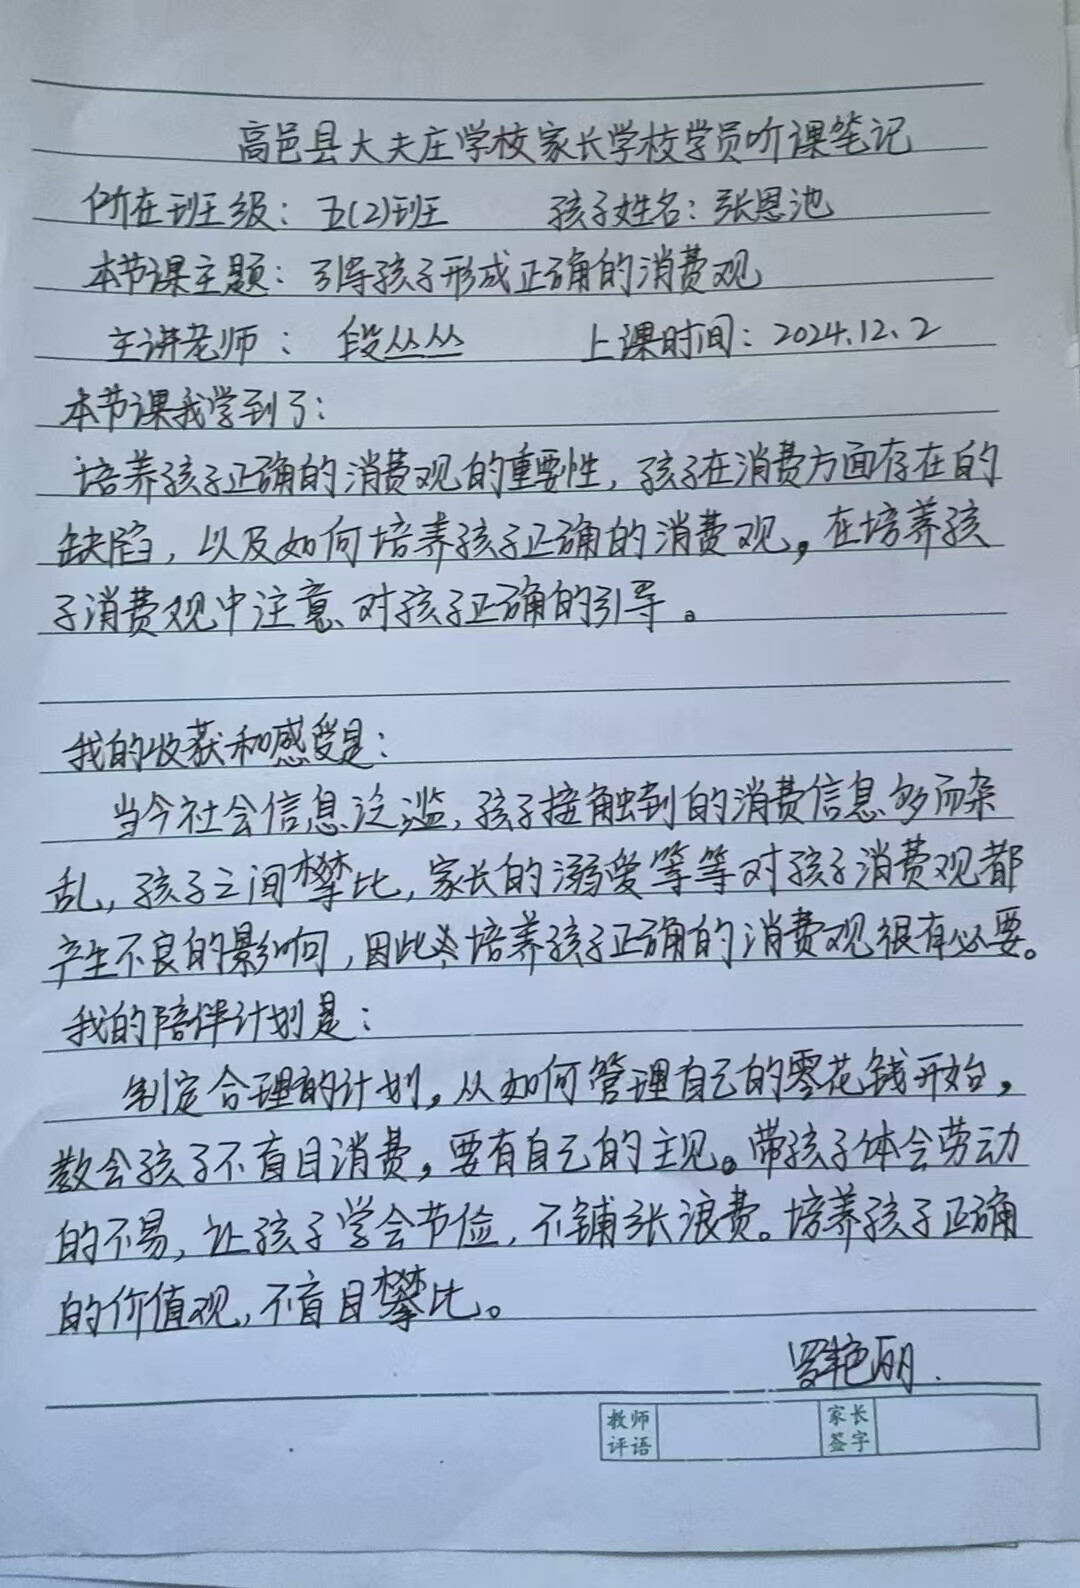 高邑县大夫庄学校家长学校学员听课笔记
所在班级：五(2)班 孩子姓名：张恩池
本节课主题：引导孩子形成正确的消费观
主讲老师：段丛丛 上课时间：2024.12.2
本节课我学到了：
培养孩子正确的消费观的重要性，孩子在消费方面存在的
缺陷，以及如何培养孩子正确的消费观，在培养孩
子消费观中注意对孩子正确的引导。
我的收获和感受是：
当今社会信息泛滥，孩子接触到的消费信息多而杂
乱，孩子之间攀比，家长的溺爱等等对孩子消费观都
产生不良的影响，因此培养孩子正确的消费观很有必要。
我的陪伴计划是：
制定合理的计划，从如何管理自己的零花钱开始，
教会孩子不盲目消费，要有自己的主见。带孩子体会劳动
的不易，让孩子学会节俭，不铺张浪费。培养孩子正确
的价值观，不盲目攀比。
罗艳丽.
教师评语 家长签字